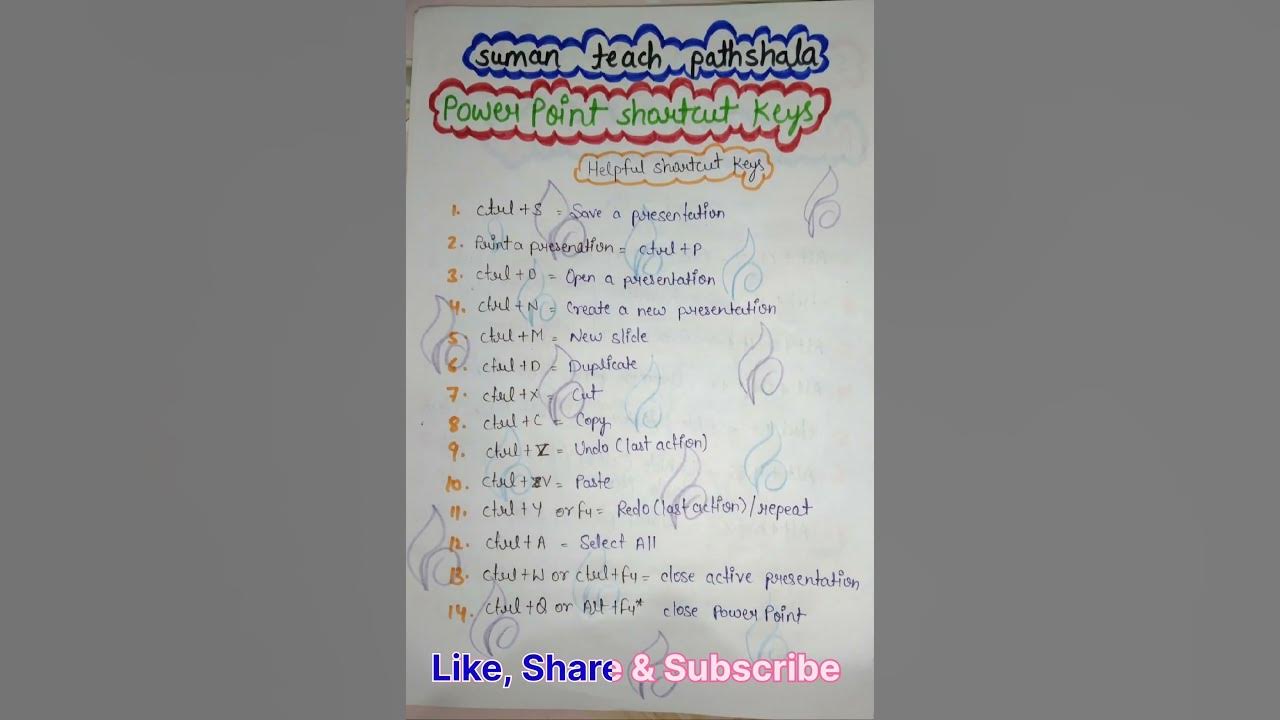 suman teach pathshala
Power Point shortcut Keys
Helpful shortcut Keys
1. ctrl+S = Save a presentation
2. Print a presenation = ctrl+P
3. ctrl+O = Open a presentation
4. ctrl+N = Create a new presentation
5 ctrl+M = New slide
6 ctrl+D = Duplicate
7. ctrl+X = Cut
8. ctrl+C = Copy
9. ctrl+Z = Undo (last action)
10. ctrl+V = Paste
11. ctrl+Y or f4 = Redo (last action)/repeat
12. ctrl+A = Select All
13. ctrl+W or ctrl+f4 = close active presentation
14. ctrl+Q or Alt+f4* close Power Point
Like, Share & Subscribe